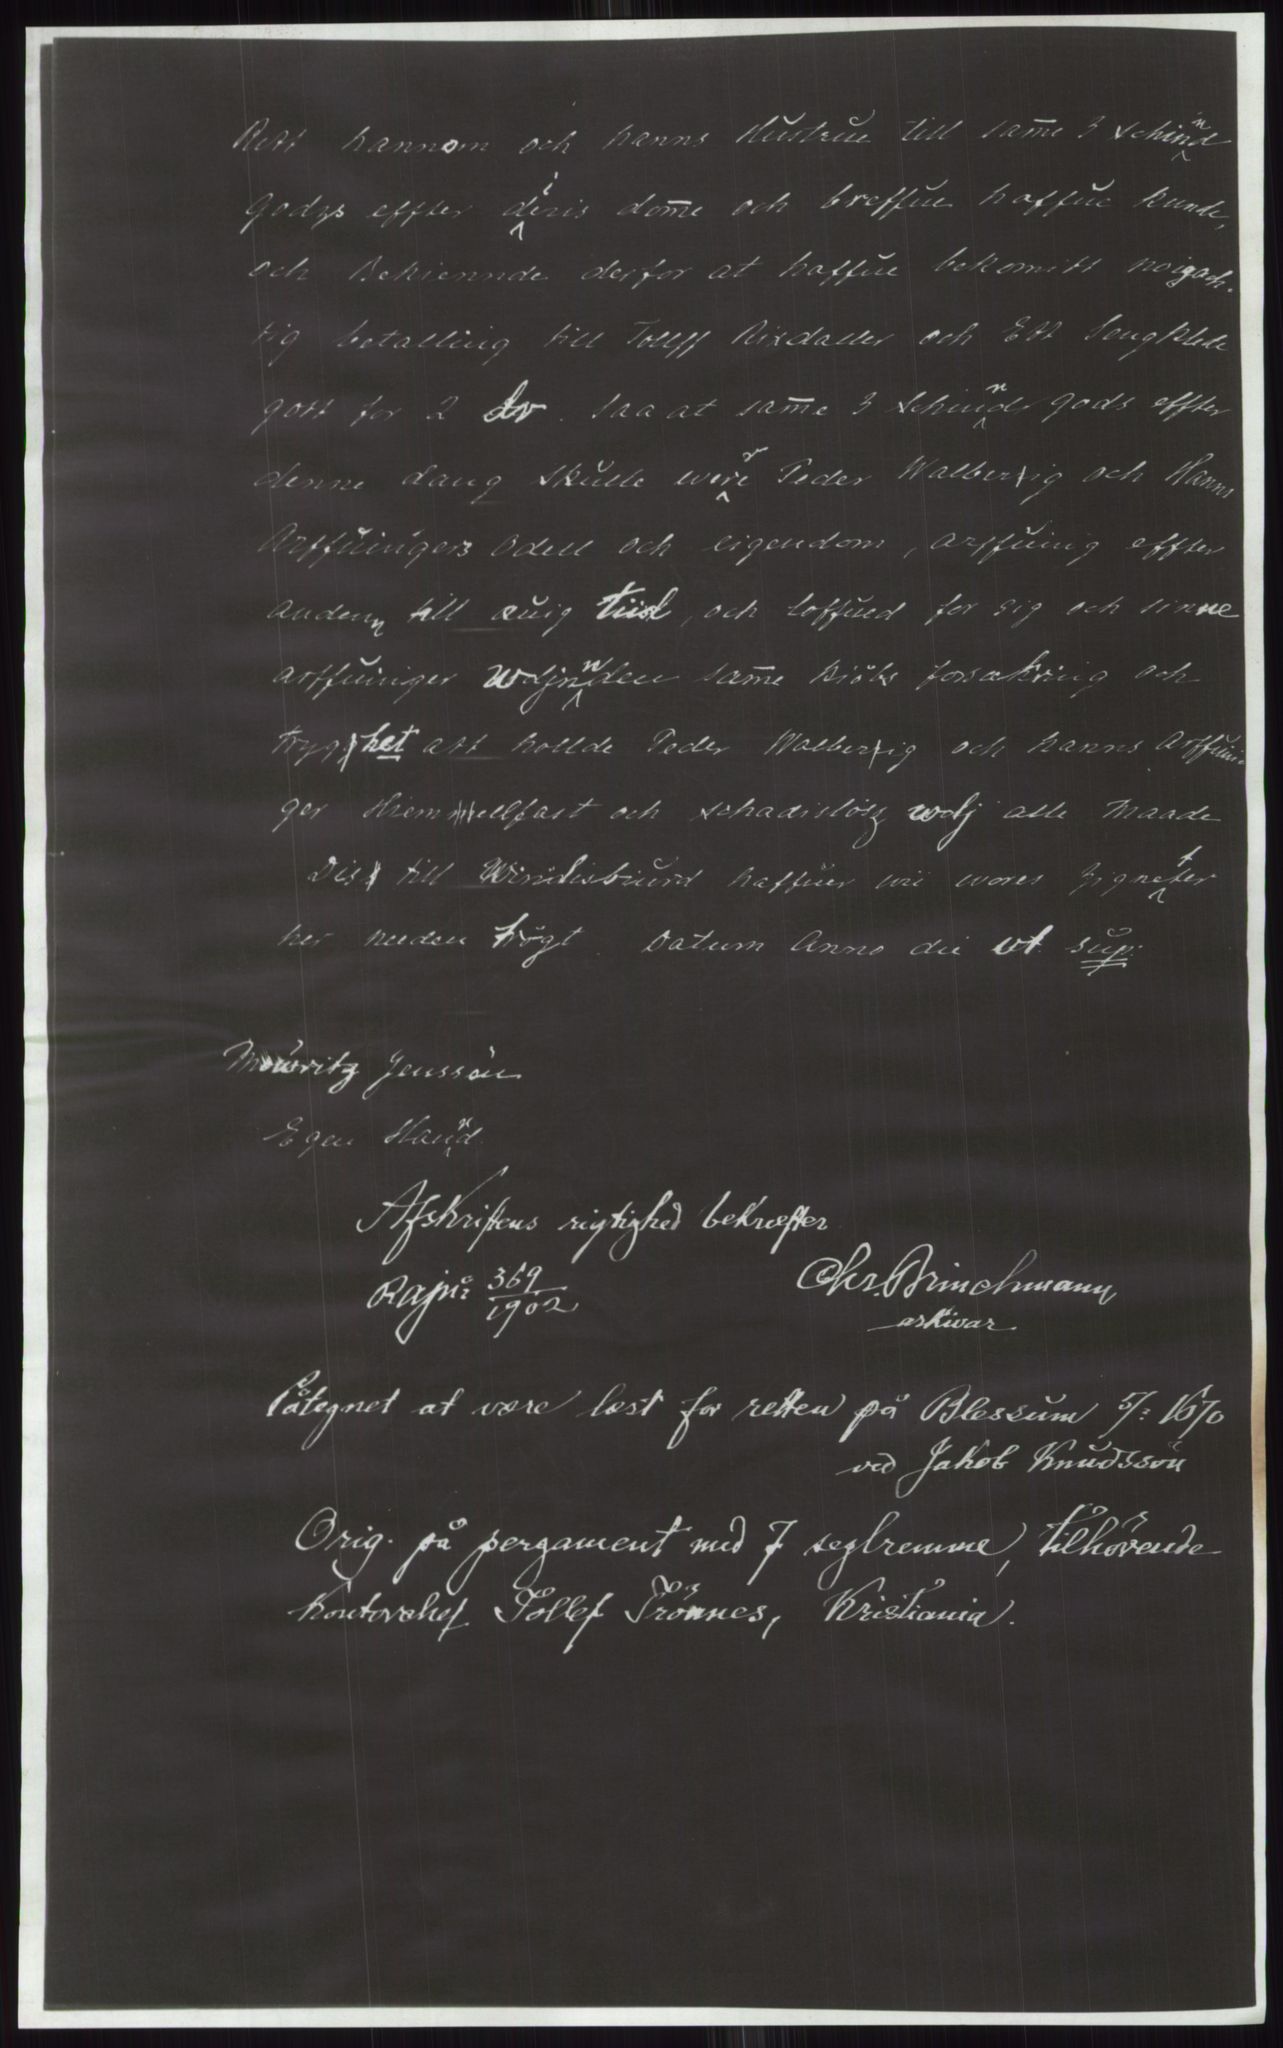 Rett hannom och hanns Hustrue till same 3 schinnd
Godzs effter diris dome och breffue haffue kunde,
och Bekiennde derfor at haffue bekomitt noigach-
tig betalling till Tollff Rixdaller och Ett Sengklede
gott for 2 Dr. saa at same 3 Schinnds gods effter
denne Daug skulle were Peder Walberig och Hanns
Arffuingers Odell och eigendom, arffuing effter
anden till euig tiid, och loffued for sig och sinne
arffuinger same Kiöbs forsekring och
tryghet att hollde Peder Walberig och hanns Arffuin-
ger Hiemellfast och schadislösz alle maade
Dis till Windisbiurd haffuer wii wores Zigneter
her neden trögt. Datum Anno die ut sup:
Mouritz Jenssön
Egen Hannd.
Afskriftens rigtighed bekræfter
Rajnr 369/1902
Chr. Brinchmann
arkivar
Påtegnet at være læst for retten på Blessum 5/: 1670
ved Jakob Knudssön
Orig. på pergament med 7 seglremme, tilhörende
kontorchef Tollef Trönnes, Kristiania.